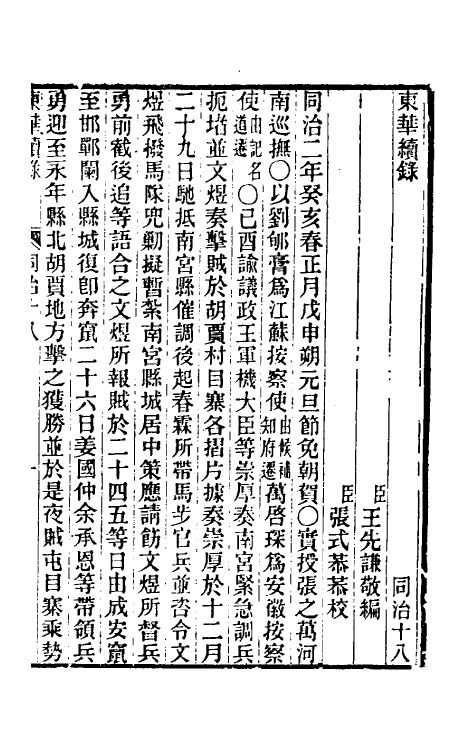 東華續錄
同治十八
臣王先謙敬編
臣張式恭恭校
同治二年癸亥春正月戊申朔元旦節免朝賀○實授張之萬河
南巡撫○以劉郇膏爲江蘇按察使由候補知府遷萬啓琛爲安徽按察
使由記名道遷○己酉諭議政王軍機大臣等崇厚奏南宮緊急調兵
扼堵並文煜奏擊賊於胡賈村目寨各摺片據奏崇厚於十二月
二十九日馳抵南宮縣催調後起春霖所帶馬步官兵並咨令文
煜飛撥馬隊兜勦擬暫紮南宮縣城居中策應請飭文煜所督兵
勇前截後追等語合之文煜所報賊於二十四五等日由成安竄
至邯鄲闌入縣城復卽奔竄二十六日姜國仲余承恩等帶領兵
勇迎至永年縣北胡賈地方擊之獲勝並於是夜賊屯目寨乘勢
東華續錄
同治十八
一